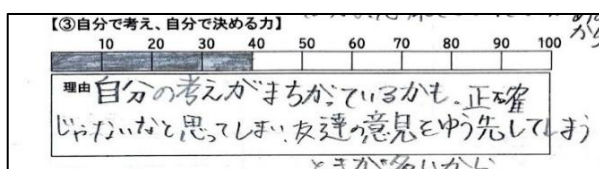 【③自分で考え、自分で決める力】
10 20 30 40 50 60 70 80 90 100
理由 自分の考えがまちがっているかも。正確
じゃないなと思ってしまい、友達の意見をゆう先してしまう
ときが多いから
から